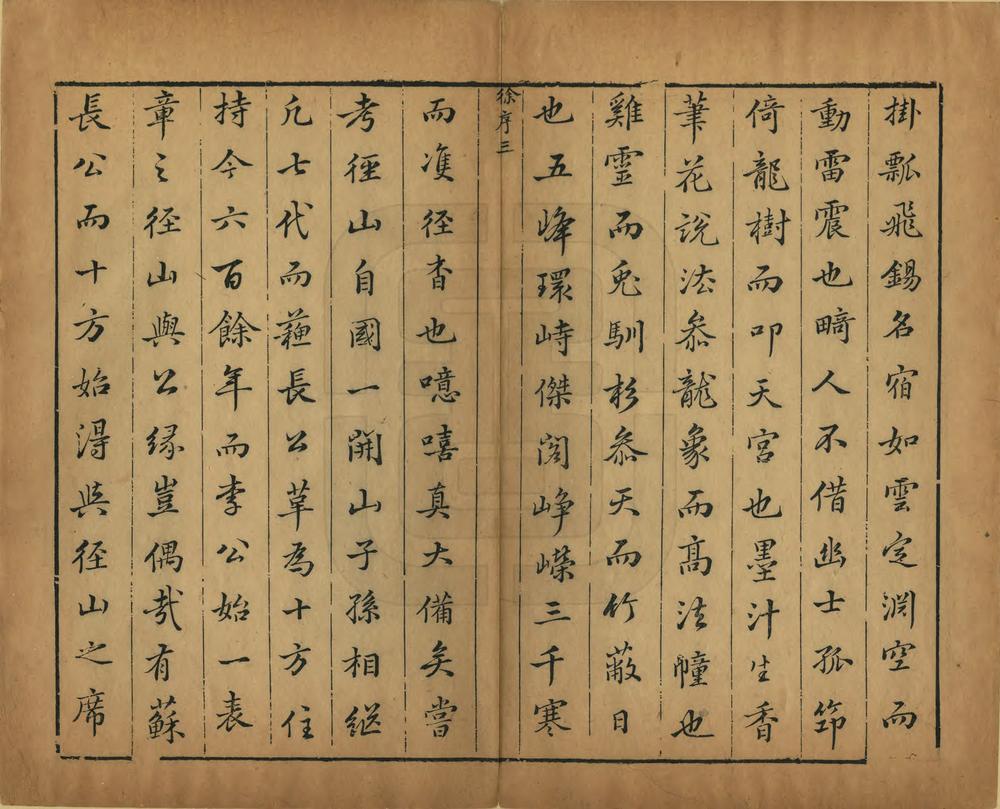 掛瓢飛錫名宿如雲定淵空而
動雷震也畸人不借幽士孤筇
倚龍樹而叩天宮也墨汁生香
筆花說法叅龍象而高法幢也
雞靈而兎馴杉叅天而竹蔽日
也五峰環峙傑閣崢嶸三千寒
徐序三
而凖径杳也噫嘻真大備矣嘗
考徑山自國一開山子孫相継
凡七代而蘓長公革為十方住
持今六百餘年而李公始一表
章之径山與公縁豈偶㢤有蘇
長公而十方始淂與径山之席